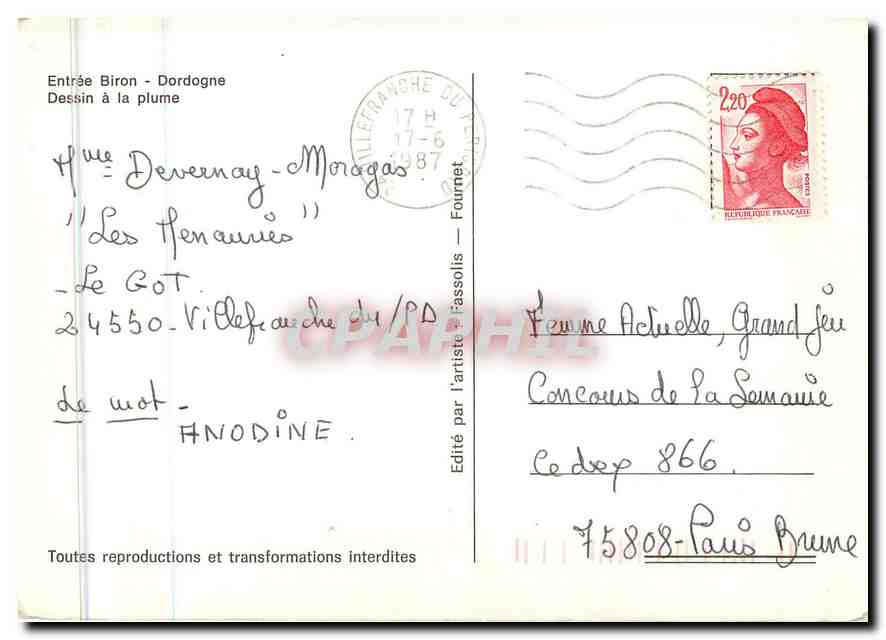 Entrée Biron - Dordogne
Dessin à la plume
VILLEFRANCHE DU PERIGORD
17 H
17-6
1987
2,20
POSTES
REPUBLIQUE FRANÇAISE
Mme Devernay-Moragas
"Les Menauries"
-Le GOT.
24550-Villefranche du/PD
Le mot -
ANODINE.
Edité par l'artiste : Fassolis — Fournet
Femme Actuelle, Grand Jeu
Concours de la Semaine
Cedex 866.
75808-Paris Brune
Toutes reproductions et transformations interdites
CPAPHIL